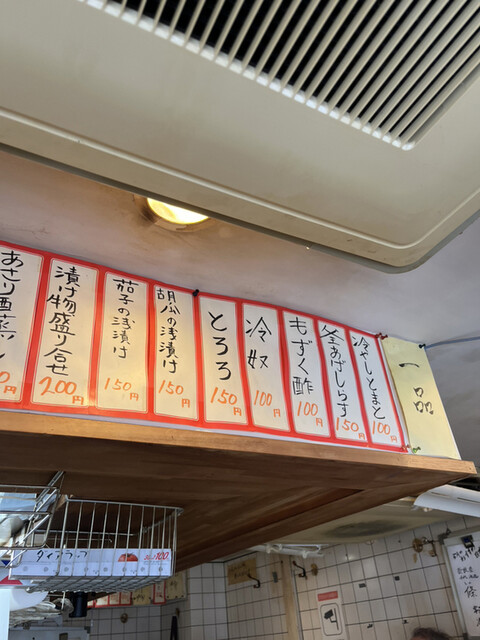 一品
冷やしとまと
100円
釜あげしらす
150円
もずく酢
100円
冷奴
100円
とろろ
150円
胡瓜の浅漬け
150円
茄子の浅漬け
150円
漬け物盛り合せ
200円
あさり酒蒸し
0円